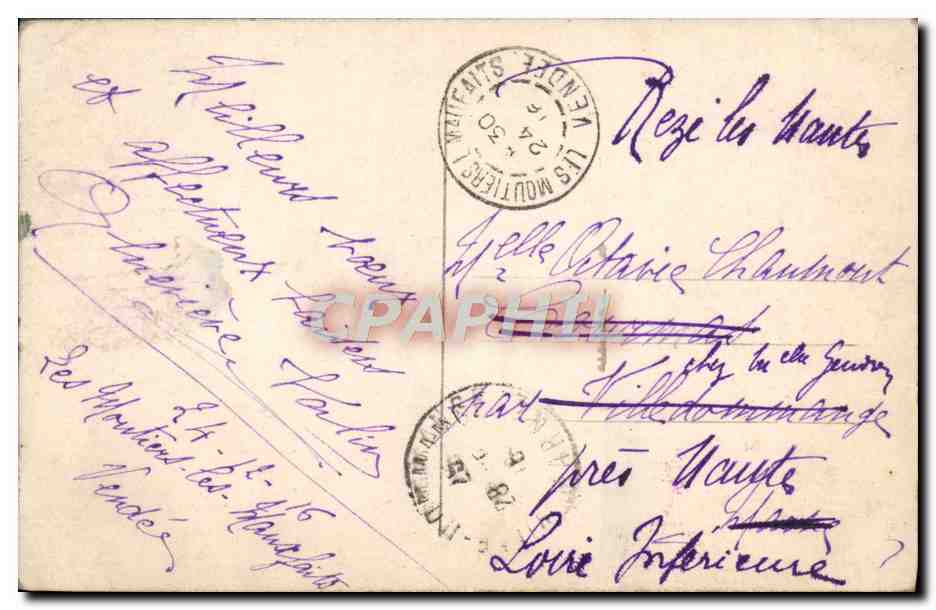 Meilleurs vœux
et affectueux baisers
Valin
24-12-16
Les Moutiers-les-Mauxfaits
Vendée
LES MOUTIERS LES MAUFAITS
VENDÉE
24
30
Rezé les Nantes
Melle Octavie Chaumont
chez
par Villedommange
près Nantes
Loire Inférieure
28
CPAPHIL